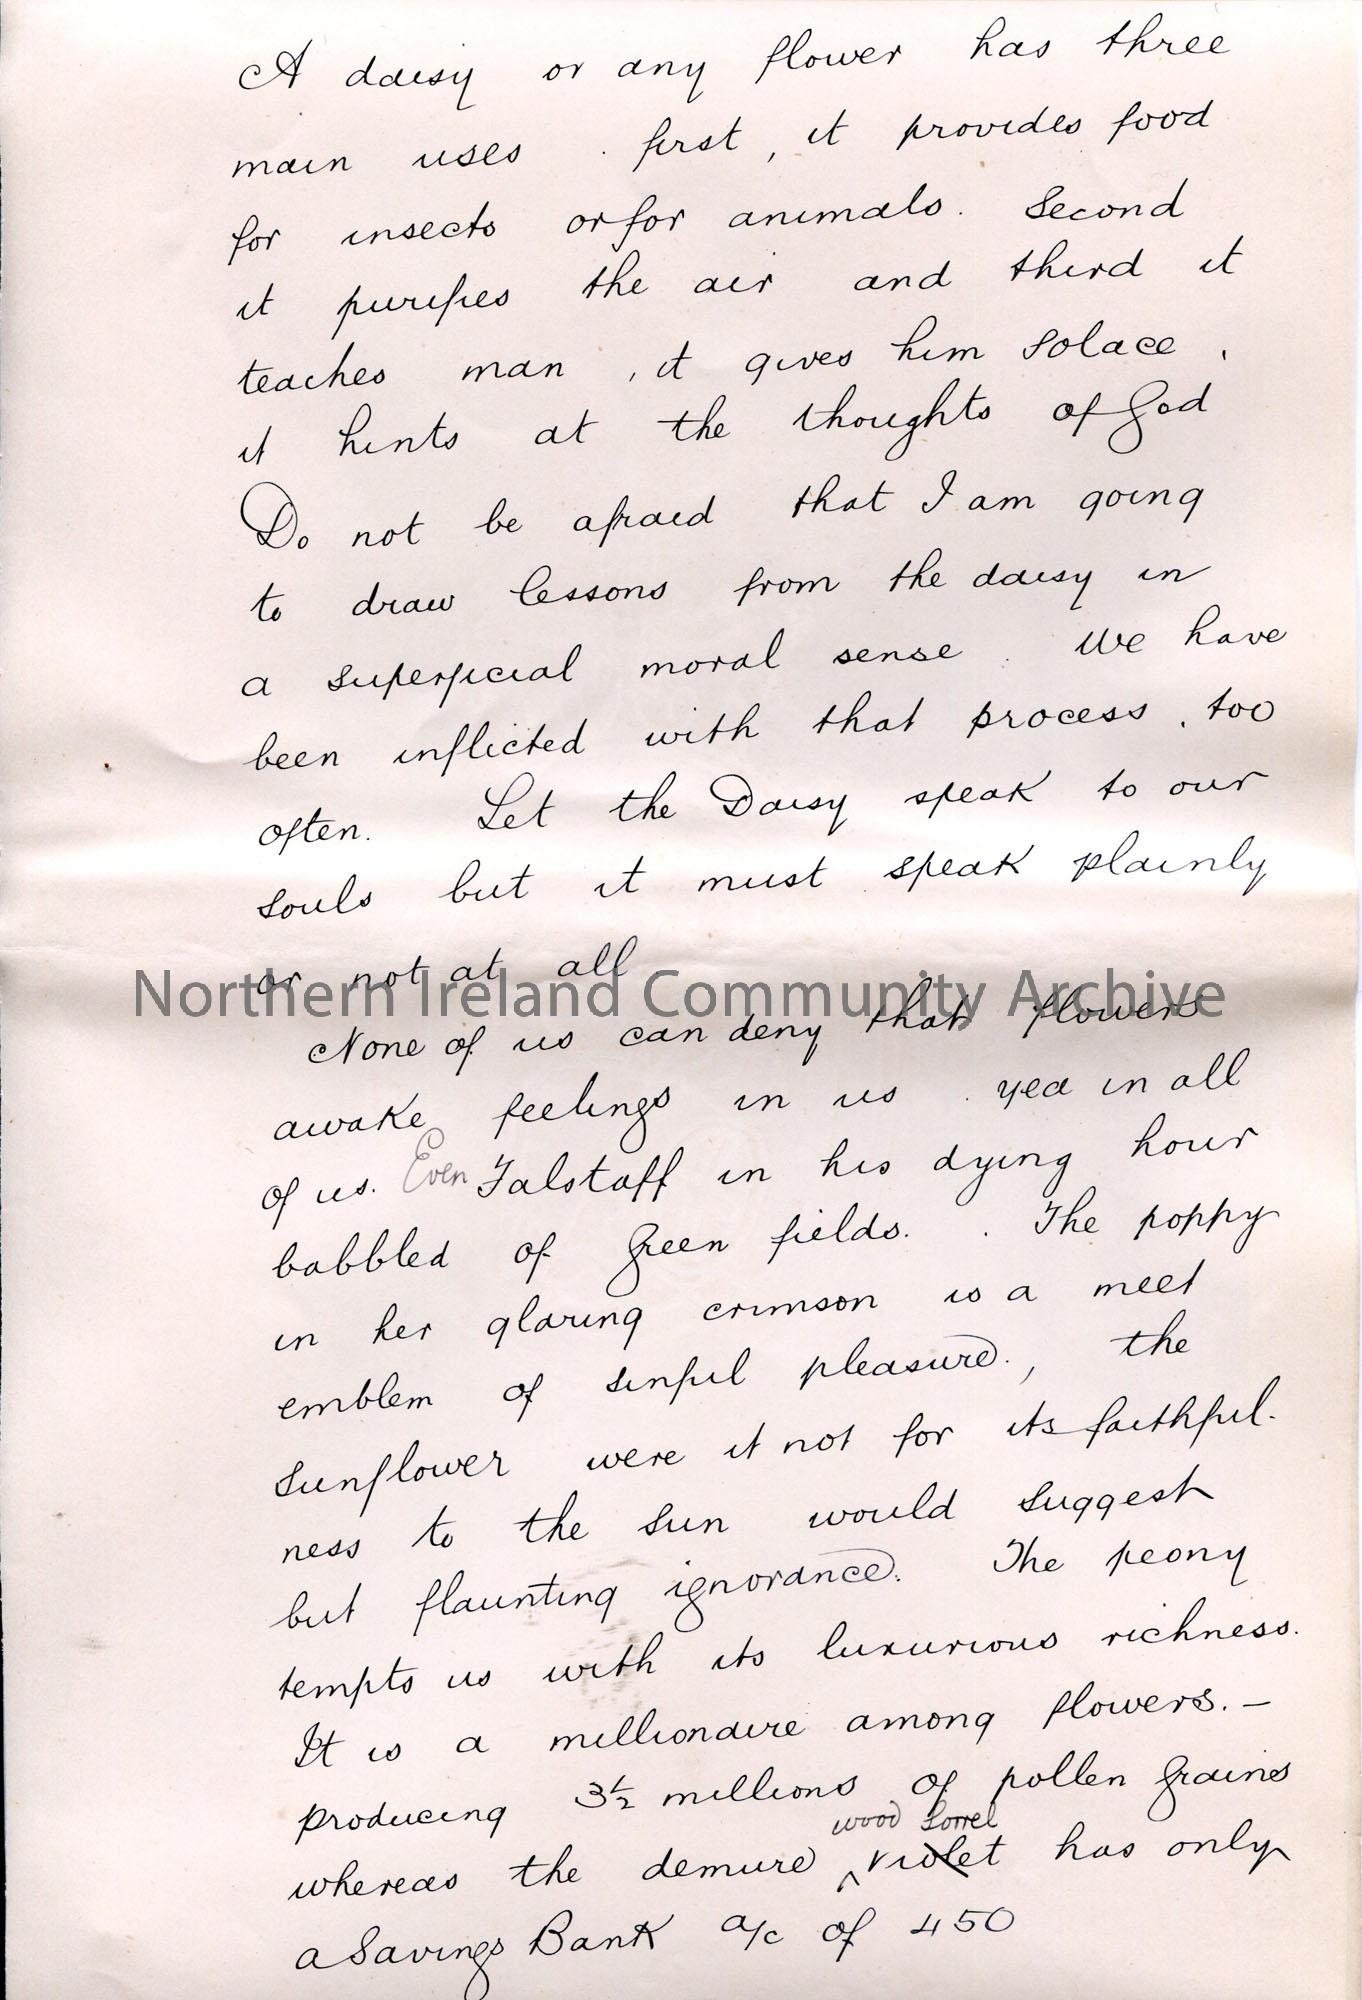 A daisy or any flower has three
main uses. first, it provides food
for insects or for animals. Second
it purifies the air and third it
teaches man, it gives him solace,
it hints at the thoughts of God
Do not be afraid that I am going
to draw lessons from the daisy in
a superficial moral sense. We have
been inflicted with that process, too
often. Let the Daisy speak to our
souls but it must speak plainly
or not at all
Northern Ireland Community Archive
None of us can deny that flowers
awake feelings in us. yea in all
of us. Even Falstaff in his dying hour
babbled of green fields. . The poppy
in her glaring crimson is a meet
emblem of sinful pleasure., the
sunflower were it not for its faithful-
ness to the sun would suggest
but flaunting ignorance. The peony
tempts us with its luxurious richness.
It is a millionaire among flowers. –
producing 3½ millions of pollen grains
wood Sorrel
whereas the demure ^ violet has only
a Savings Bank a/c of 450